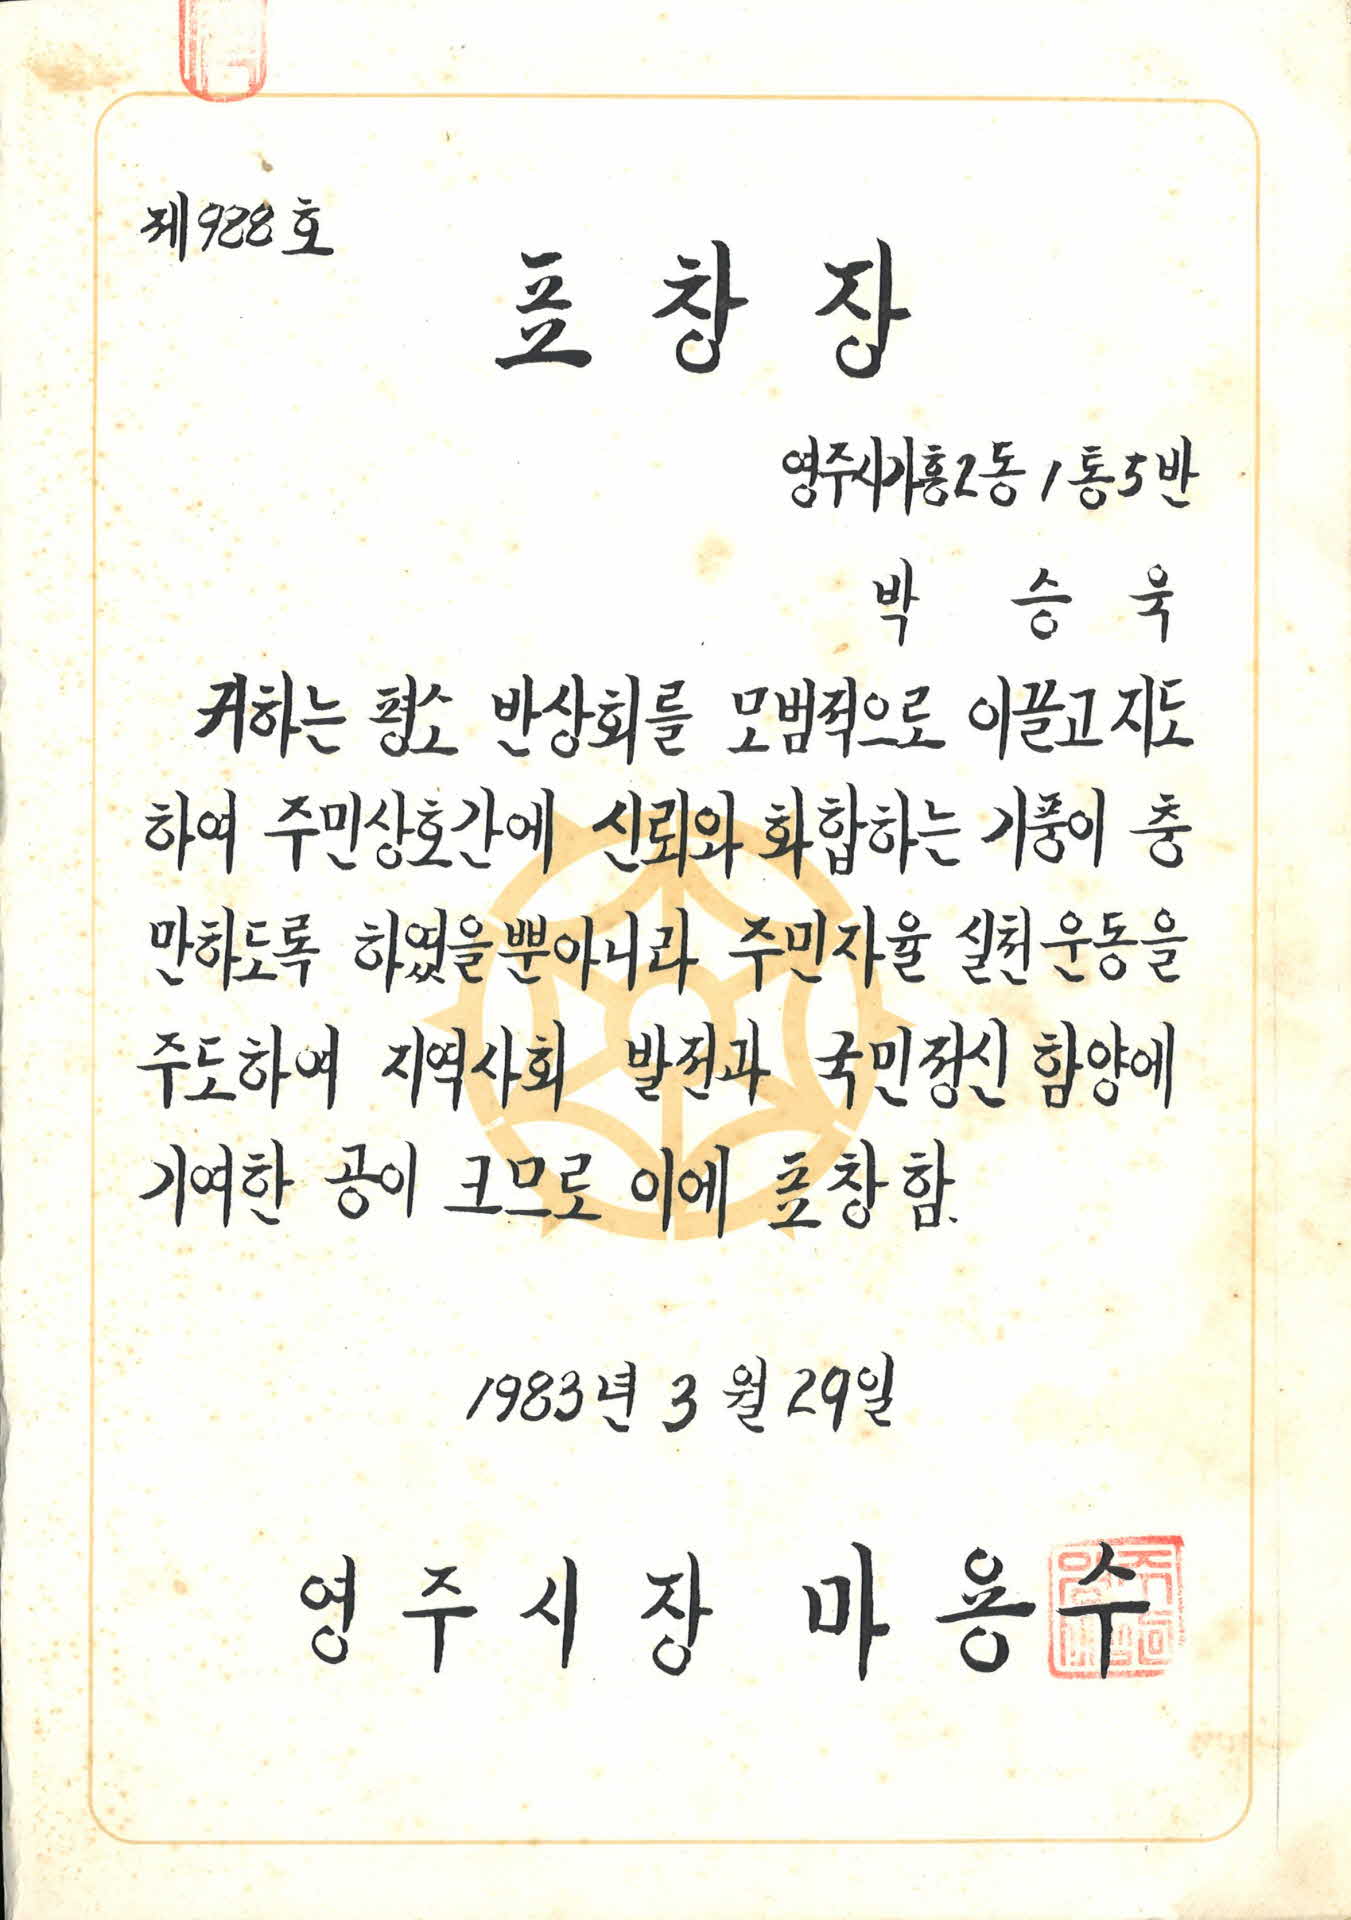 제988호
표창장
영주시가흥2동1통5반
박 승 욱
귀하는 평소 반상회를 모범적으로 이끌고지도
하여 주민상호간에 신뢰와 화합하는 기풍이 충
만하도록 하였을뿐아니라 주민자율 실천운동을
주도하여 지역사회 발전과 국민정신 함양에
기여한 공이 크므로 이에 표창함.
1983년 3월 29일
영주시장 마용수